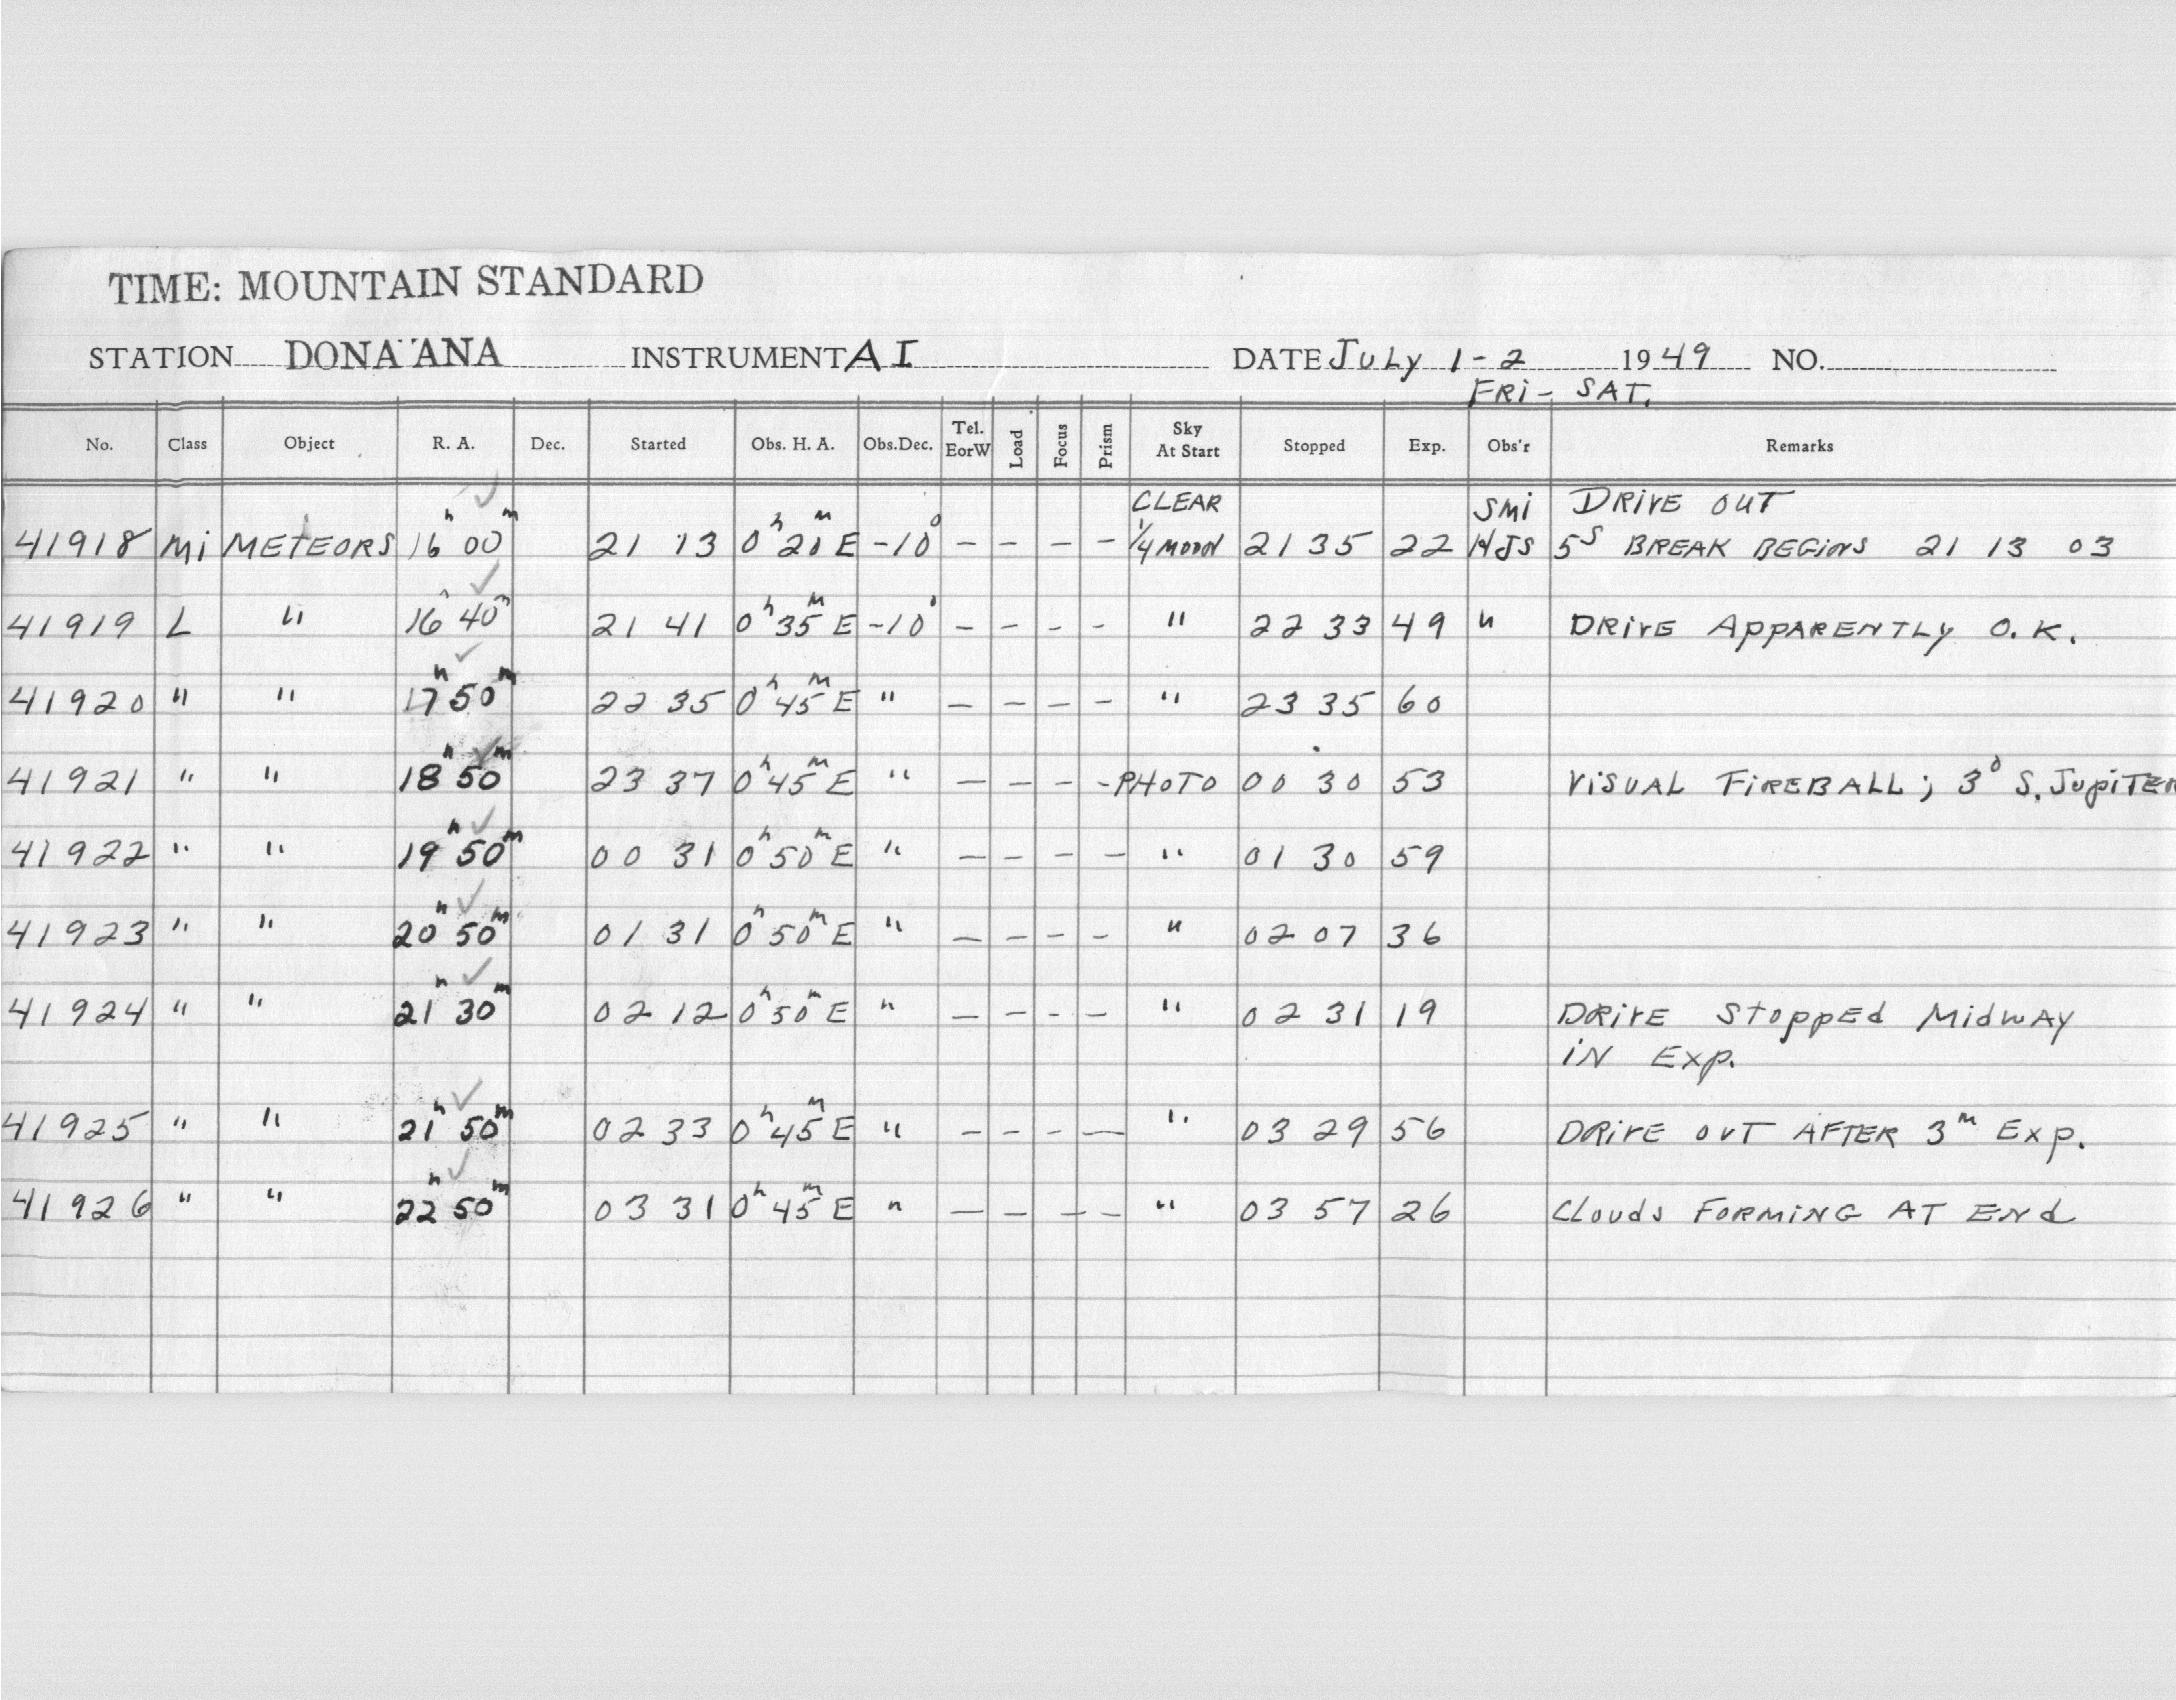 TIME: MOUNTAIN STANDARD
STATION DONA ANA INSTRUMENT AI DATE JULY 1-2 1949 NO.
FRI- SAT.
No. Class Object R. A. Dec. Started Obs. H. A. Obs.Dec. Tel. EorW Load Focus Prism Sky At Start Stopped Exp. Obs'r Remarks
CLEAR SMi DRIVE OUT
41918 Mi METEORS 16h 00m 21 13 0h 20m E -10° - - - - 1/4 MOON 21 35 22 HJS 5s BREAK BEGINS 21 13 03
41919 L " 16h 40m 21 41 0h 35m E -10° - - - - " 22 33 49 " DRIVE APPARENTLY O.K.
41920 " " 17h 50m 22 35 0h 45m E " - - - - " 23 35 60
41921 " " 18h 50m 23 37 0h 45m E " - - - - PHOTO 00 30 53 VISUAL FIREBALL; 3° S. JUPITER
41922 " " 19h 50m 00 31 0h 50m E " - - - - " 01 30 59
41923 " " 20h 50m 01 31 0h 50m E " - - - - " 02 07 36
41924 " " 21h 30m 02 12 0h 50m E " - - - - " 02 31 19 DRIVE STOPPED MIDWAY
IN EXP.
41925 " " 21h 50m 02 33 0h 45m E " - - - - " 03 29 56 DRIVE OUT AFTER 3m EXP.
41926 " " 22h 50m 03 31 0h 45m E " - - - - " 03 57 26 CLOUDS FORMING AT END